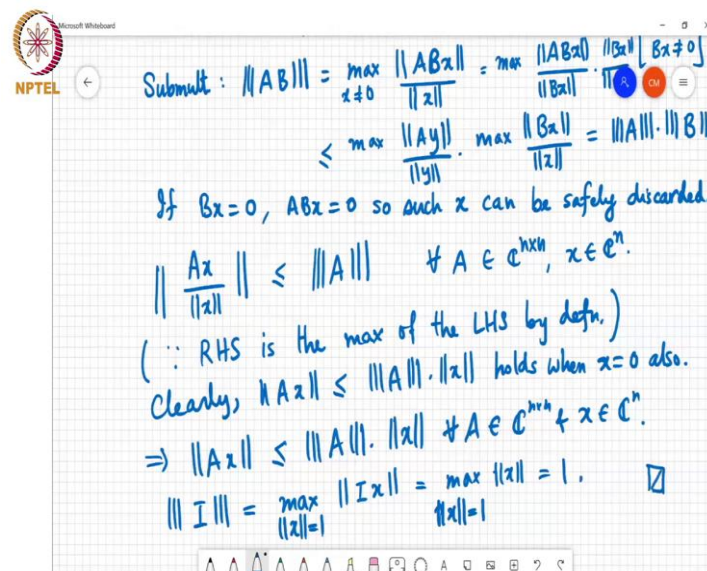 Microsoft Whiteboard
NPTEL
Submult: |||AB||| = max_{x≠0} ||ABx||/||x|| = max ||ABx||/||Bx|| · ||Bx||/|| [Bx≠0]
CM
≤ max ||Ay||/||y|| · max ||Bx||/||x|| = |||A|||·|||B||
If Bx=0, ABx=0 so such x can be safely discarded.
|| Ax/||x|| || ≤ |||A||| ∀ A ∈ ℂ^{n×n}, x ∈ ℂ^n.
(∵ RHS is the max of the LHS by defn.)
Clearly, ||Ax|| ≤ |||A|||·||x|| holds when x=0 also.
⇒ ||Ax|| ≤ |||A|||·||x|| ∀ A ∈ ℂ^{n×n} & x ∈ ℂ^n.
|||I||| = max_{||x||=1} ||Ix|| = max_{||x||=1} ||x|| = 1.